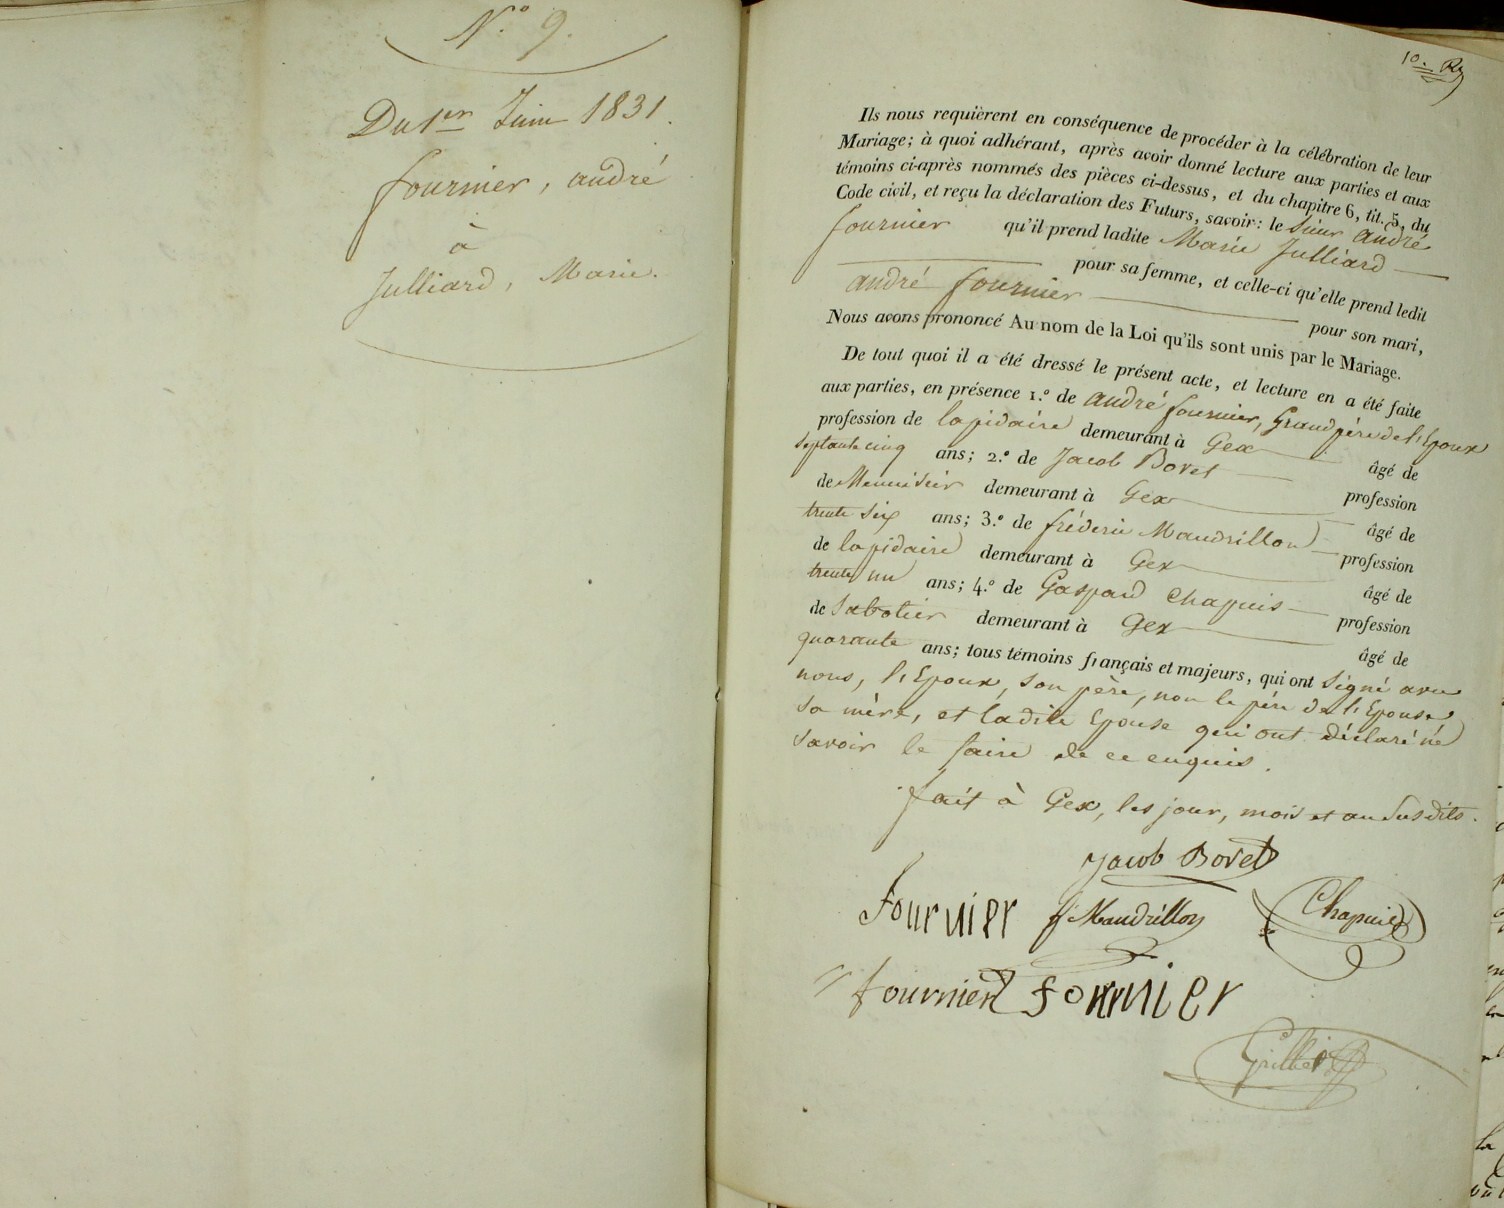 N.º 9.
Du 1er Juin 1831.
fournier, andré
à
Julliard, Marie.
10.
Ils nous requièrent en conséquence de procéder à la célébration de leur
Mariage; à quoi adhérant, après avoir donné lecture aux parties et aux
témoins ci-après nommés des pièces ci-dessus, et du chapitre 6, tit. 5, du
Code civil, et reçu la déclaration des Futurs, savoir: le Sieur andré
fournier qu'il prend ladite Marie Julliard
pour sa femme, et celle-ci qu'elle prend ledit
andré fournier pour son mari,
Nous avons prononcé Au nom de la Loi qu'ils sont unis par le Mariage.
De tout quoi il a été dressé le présent acte, et lecture en a été faite
aux parties, en présence 1.º de andré fournier, Grand père de l'Epoux
profession de lapidaire demeurant à Gex âgé de
septante cinq ans; 2.º de Jacob Bovet profession
de Menuisier demeurant à Gex âgé de
trente six ans; 3.º de fréderic Maudrillon profession
de lapidaire demeurant à Gex âgé de
trente un ans; 4.º de Gaspard Chapuis profession
de Sabotier demeurant à Gex âgé de
quarante ans; tous témoins français et majeurs, qui ont signé avec
nous, l'Epoux, son père, non le père de l'Epouse,
sa mère, et ladite Epouse qui ont déclaré ne
savoir le faire de ce enquis.
fait à Gex, les jour, mois et an susdits.
Jacob Bovet
Fournier f Maudrillon Chapuis
fournier fournier